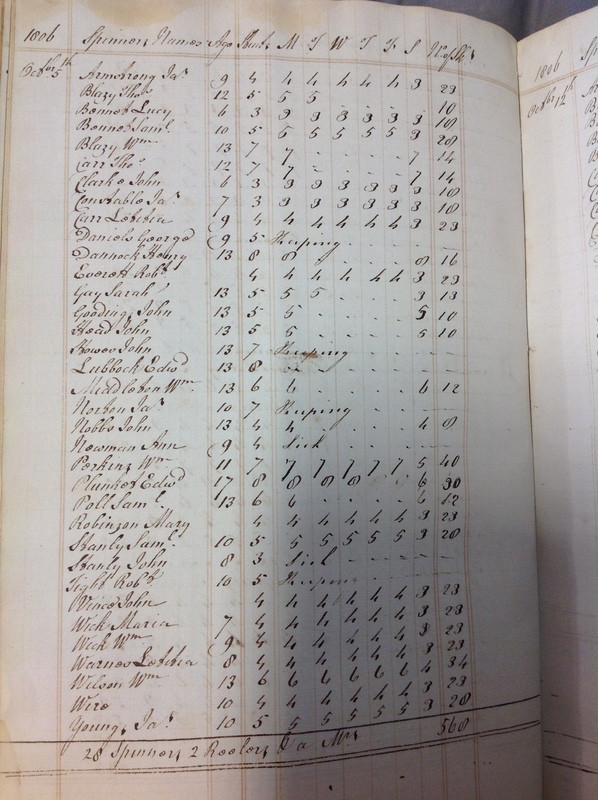 1806 Spinners Names Age Stint M T W T F S No of Sks
Octbr 5th Armstrong Jas 9 4 4 4 4 4 4 3 23
Blazy Thos 12 5 5 5 - - - - 10
Bennet Lucy 6 3 3 3 3 3 3 3 18
Bennet Saml 10 5 5 5 5 5 5 3 28
Blazy Wm 13 7 7 - - - - 7 14
Carr Thos 12 7 7 - - - - 7 14
Clarke John 6 3 3 3 3 3 3 3 18
Constable Jas 7 3 3 3 3 3 3 3 18
Carr Letitia 9 4 4 4 4 4 4 3 23
Daniels George 9 5 Keeping - - - -
Dannock Henry 13 8 8 - - - - 8 16
Everett Robt 4 4 4 4 4 4 3 23
Gay Sarah 13 5 5 5 - - - 3 13
Gooding John 13 5 5 - - - - 5 10
Head John 13 5 5 - - - - 5 10
Howes John 13 7 Keeping - - - -
Lubbock Edwd 13 8 - - - - - -
Middleton Wm 13 6 6 - - - - 6 12
Norton Jas 10 7 Keeping - - - -
Nobbs John 13 4 4 - - - - 4 8
Newman Ann 9 4 Sick - - - -
Perkins Wm 11 7 7 7 7 7 7 5 40
Plunket Edwd 17 8 8 8 8 - - 6 30
Poll Saml 13 6 6 - - - - 6 12
Robinson Mary 4 4 4 4 4 4 3 23
Stanly Saml 10 5 5 5 5 5 5 3 28
Stanly John 8 3 Sick - - - -
Tight Robt 10 5 Keeping - - - -
Vince John 4 4 4 4 4 4 3 23
Wick Maria 7 4 4 4 4 4 4 3 23
Wick Wm 9 4 4 4 4 4 4 3 23
Warnes Letitia 8 4 4 4 4 4 4 3 23
Wilson Wm 13 6 6 6 6 6 6 4 34
Wire 10 4 4 4 4 4 4 3 23
Young Jas 10 5 5 5 5 5 5 3 28
568
28 Spinners 2 Reelers
1806
Octbr 12th